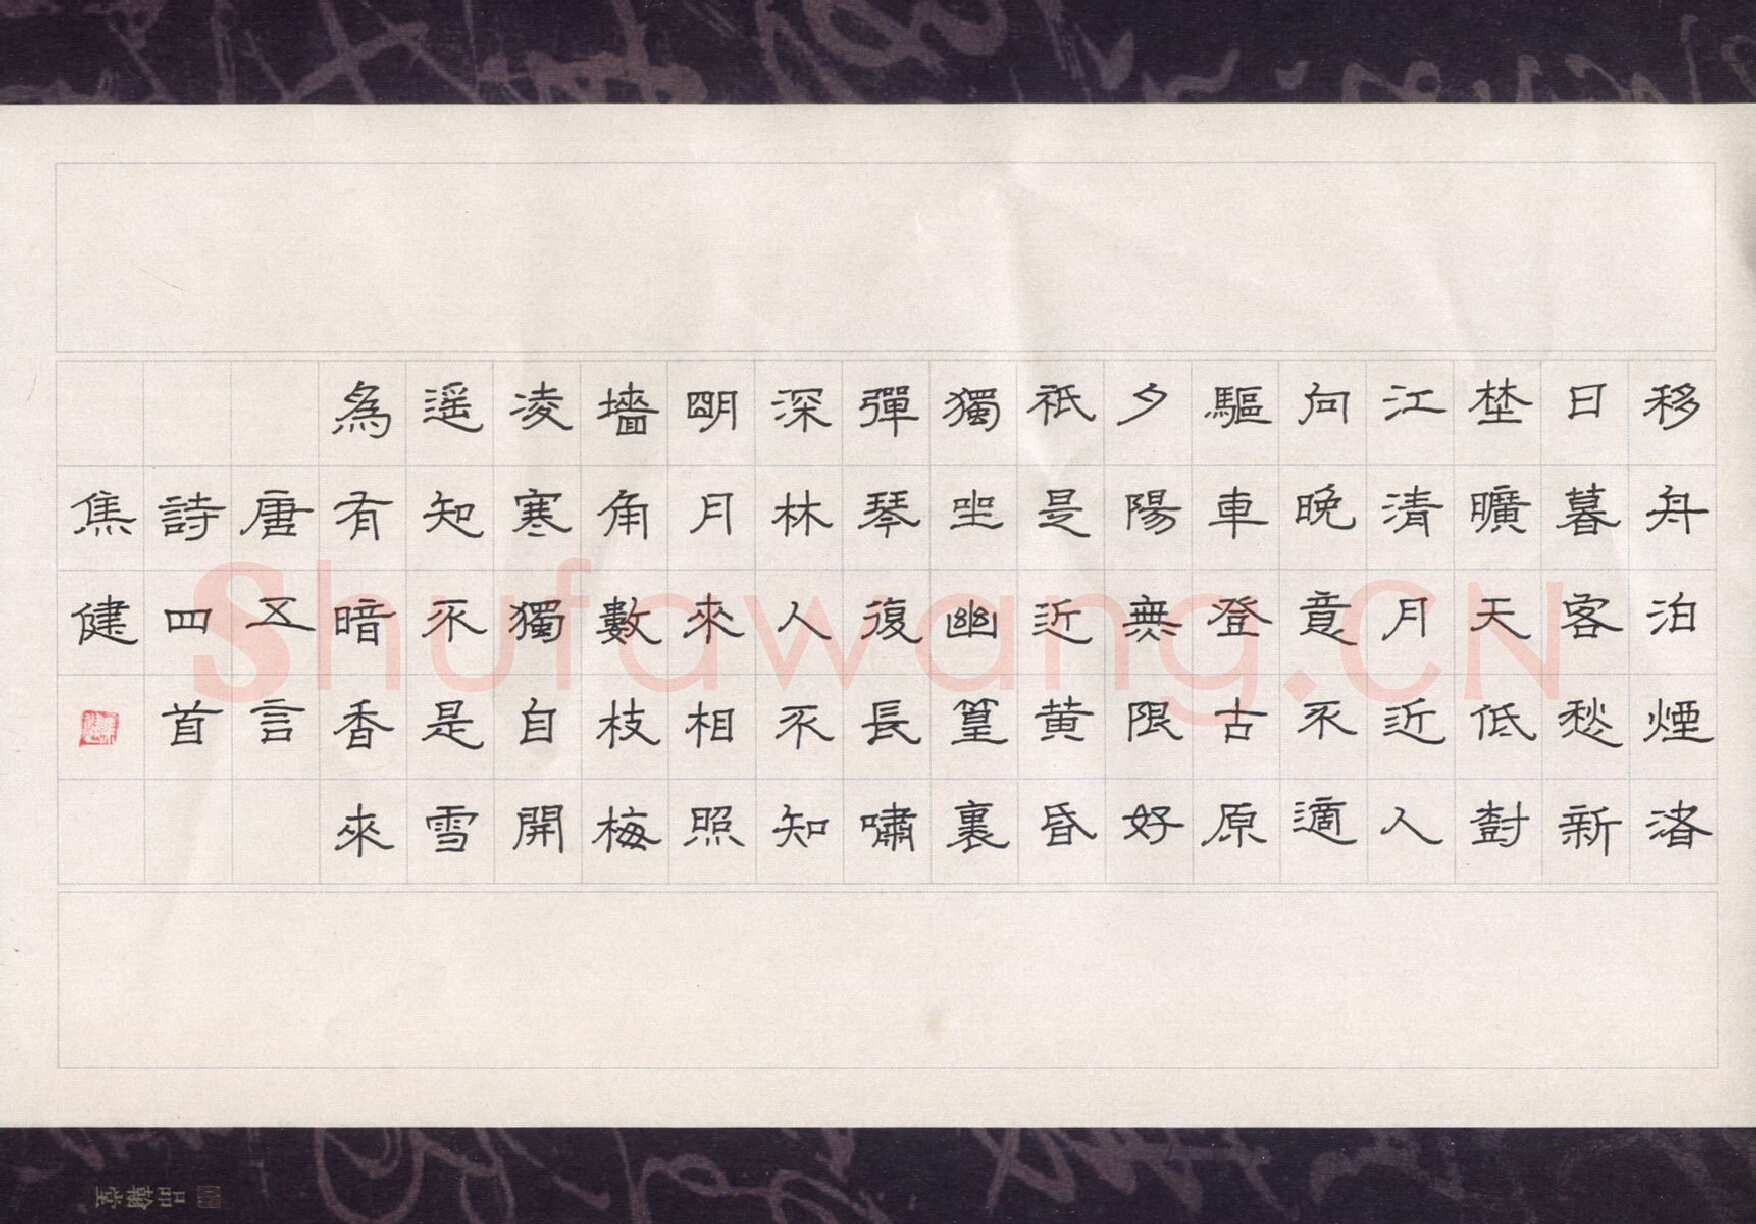 移舟泊煙渚
日暮客愁新
埜曠天低樹
江清月近人
向晚意不適
驅車登古原
夕陽無限好
祇是近黄昏
獨坐幽篁裏
彈琴復長嘯
深林人不知
明月來相照
墻角數枝梅
凌寒獨自開
遥知不是雪
為有暗香來
唐五言
詩四首
焦健
Shufawang.CN
品翰堂